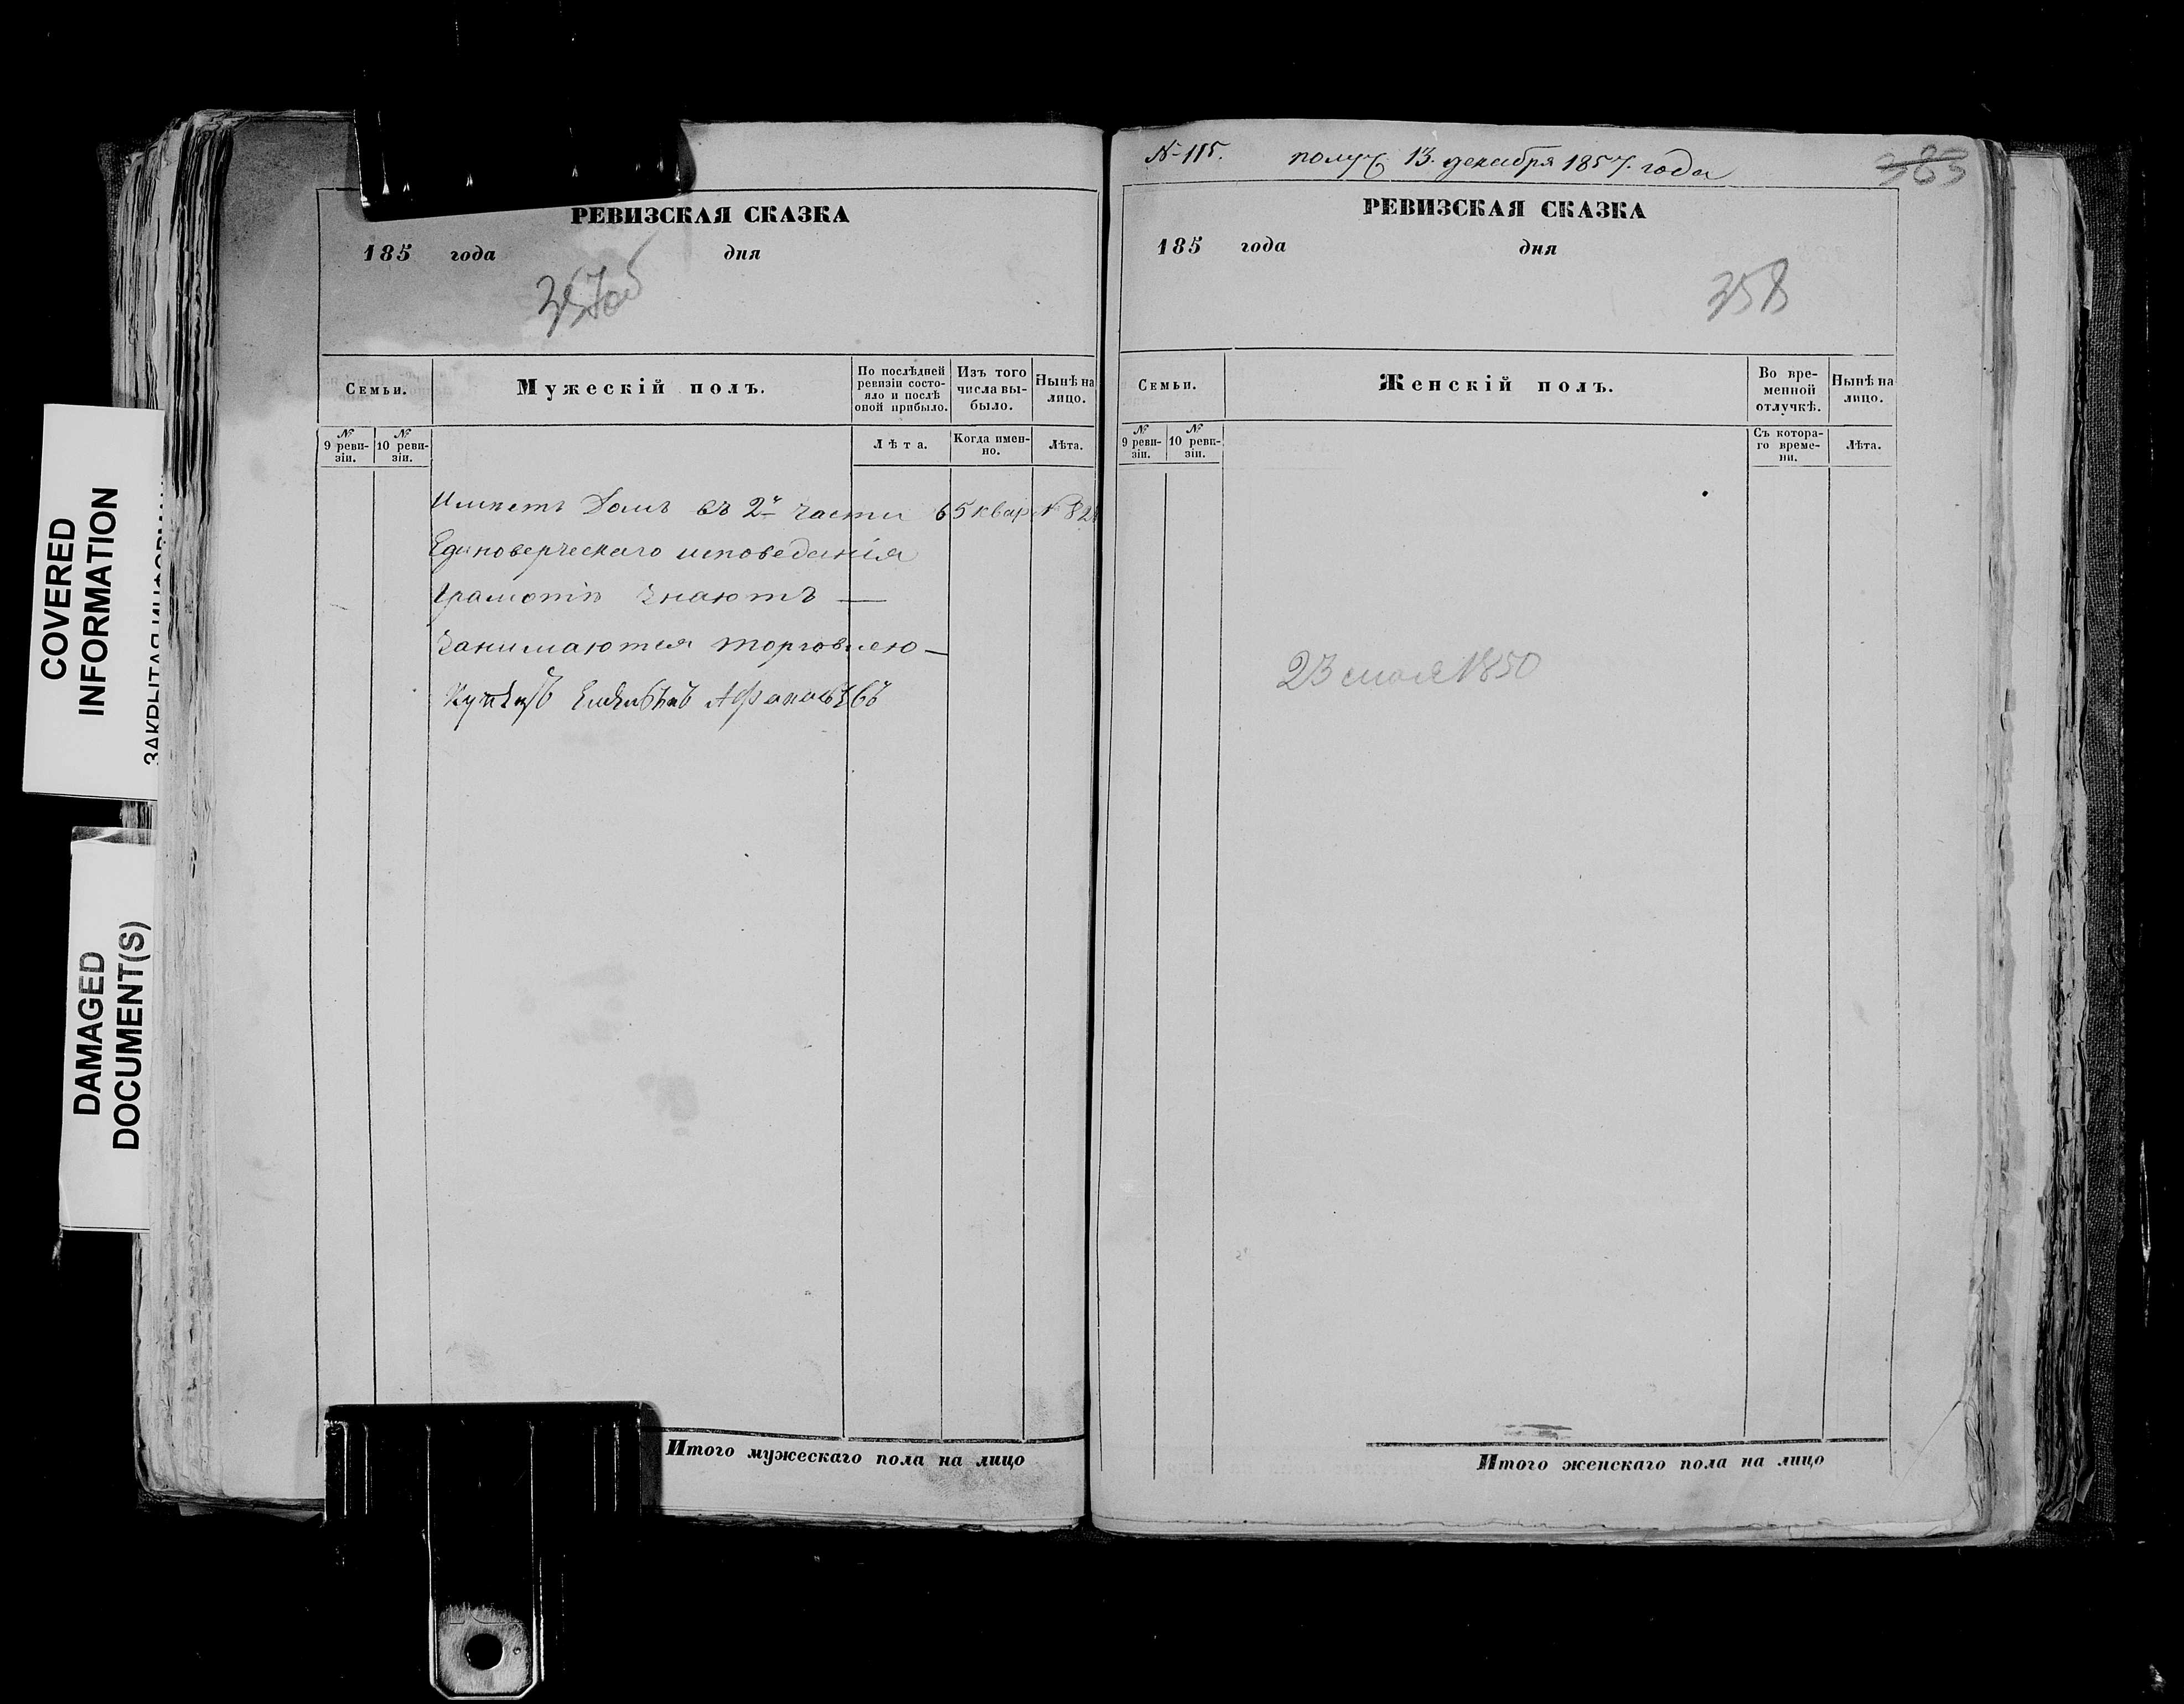 COVERED
INFORMATION
DAMAGED
DOCUMENT(S)
РЕВИЗСКАЯ СКАЗКА
185 года дня
357об
Семьи.
Мужескій полъ.
По послѣдней ревизіи состо-
яло и послѣ
оной прибыло.
Изъ того
числа вы-
было.
Нынѣ на
лицо.
№
9 реви-
зіи.
№
10 реви-
зіи.
Лѣта.
Когда имен-
но.
Лѣта.
Имѣетъ Домъ въ 2й части 65 квар № 82
Единоверческаго исповеданія
Грамотѣ знаютъ —
Занимаются торговлею —
Купѣцъ Афонасьѣвъ
Итого мужескаго пола на лицо
№ 115. получ. 13. декабря 1857. года
РЕВИЗСКАЯ СКАЗКА
185 года дня
358
Семьи.
Женскій полъ.
Во вре-
менной
отлучкѣ.
Нынѣ на
лицо.
№
9 реви-
зіи.
№
10 реви-
зіи.
Съ котора-
го време-
ни.
Лѣта.
23 1850
Итого женскаго пола на лицо